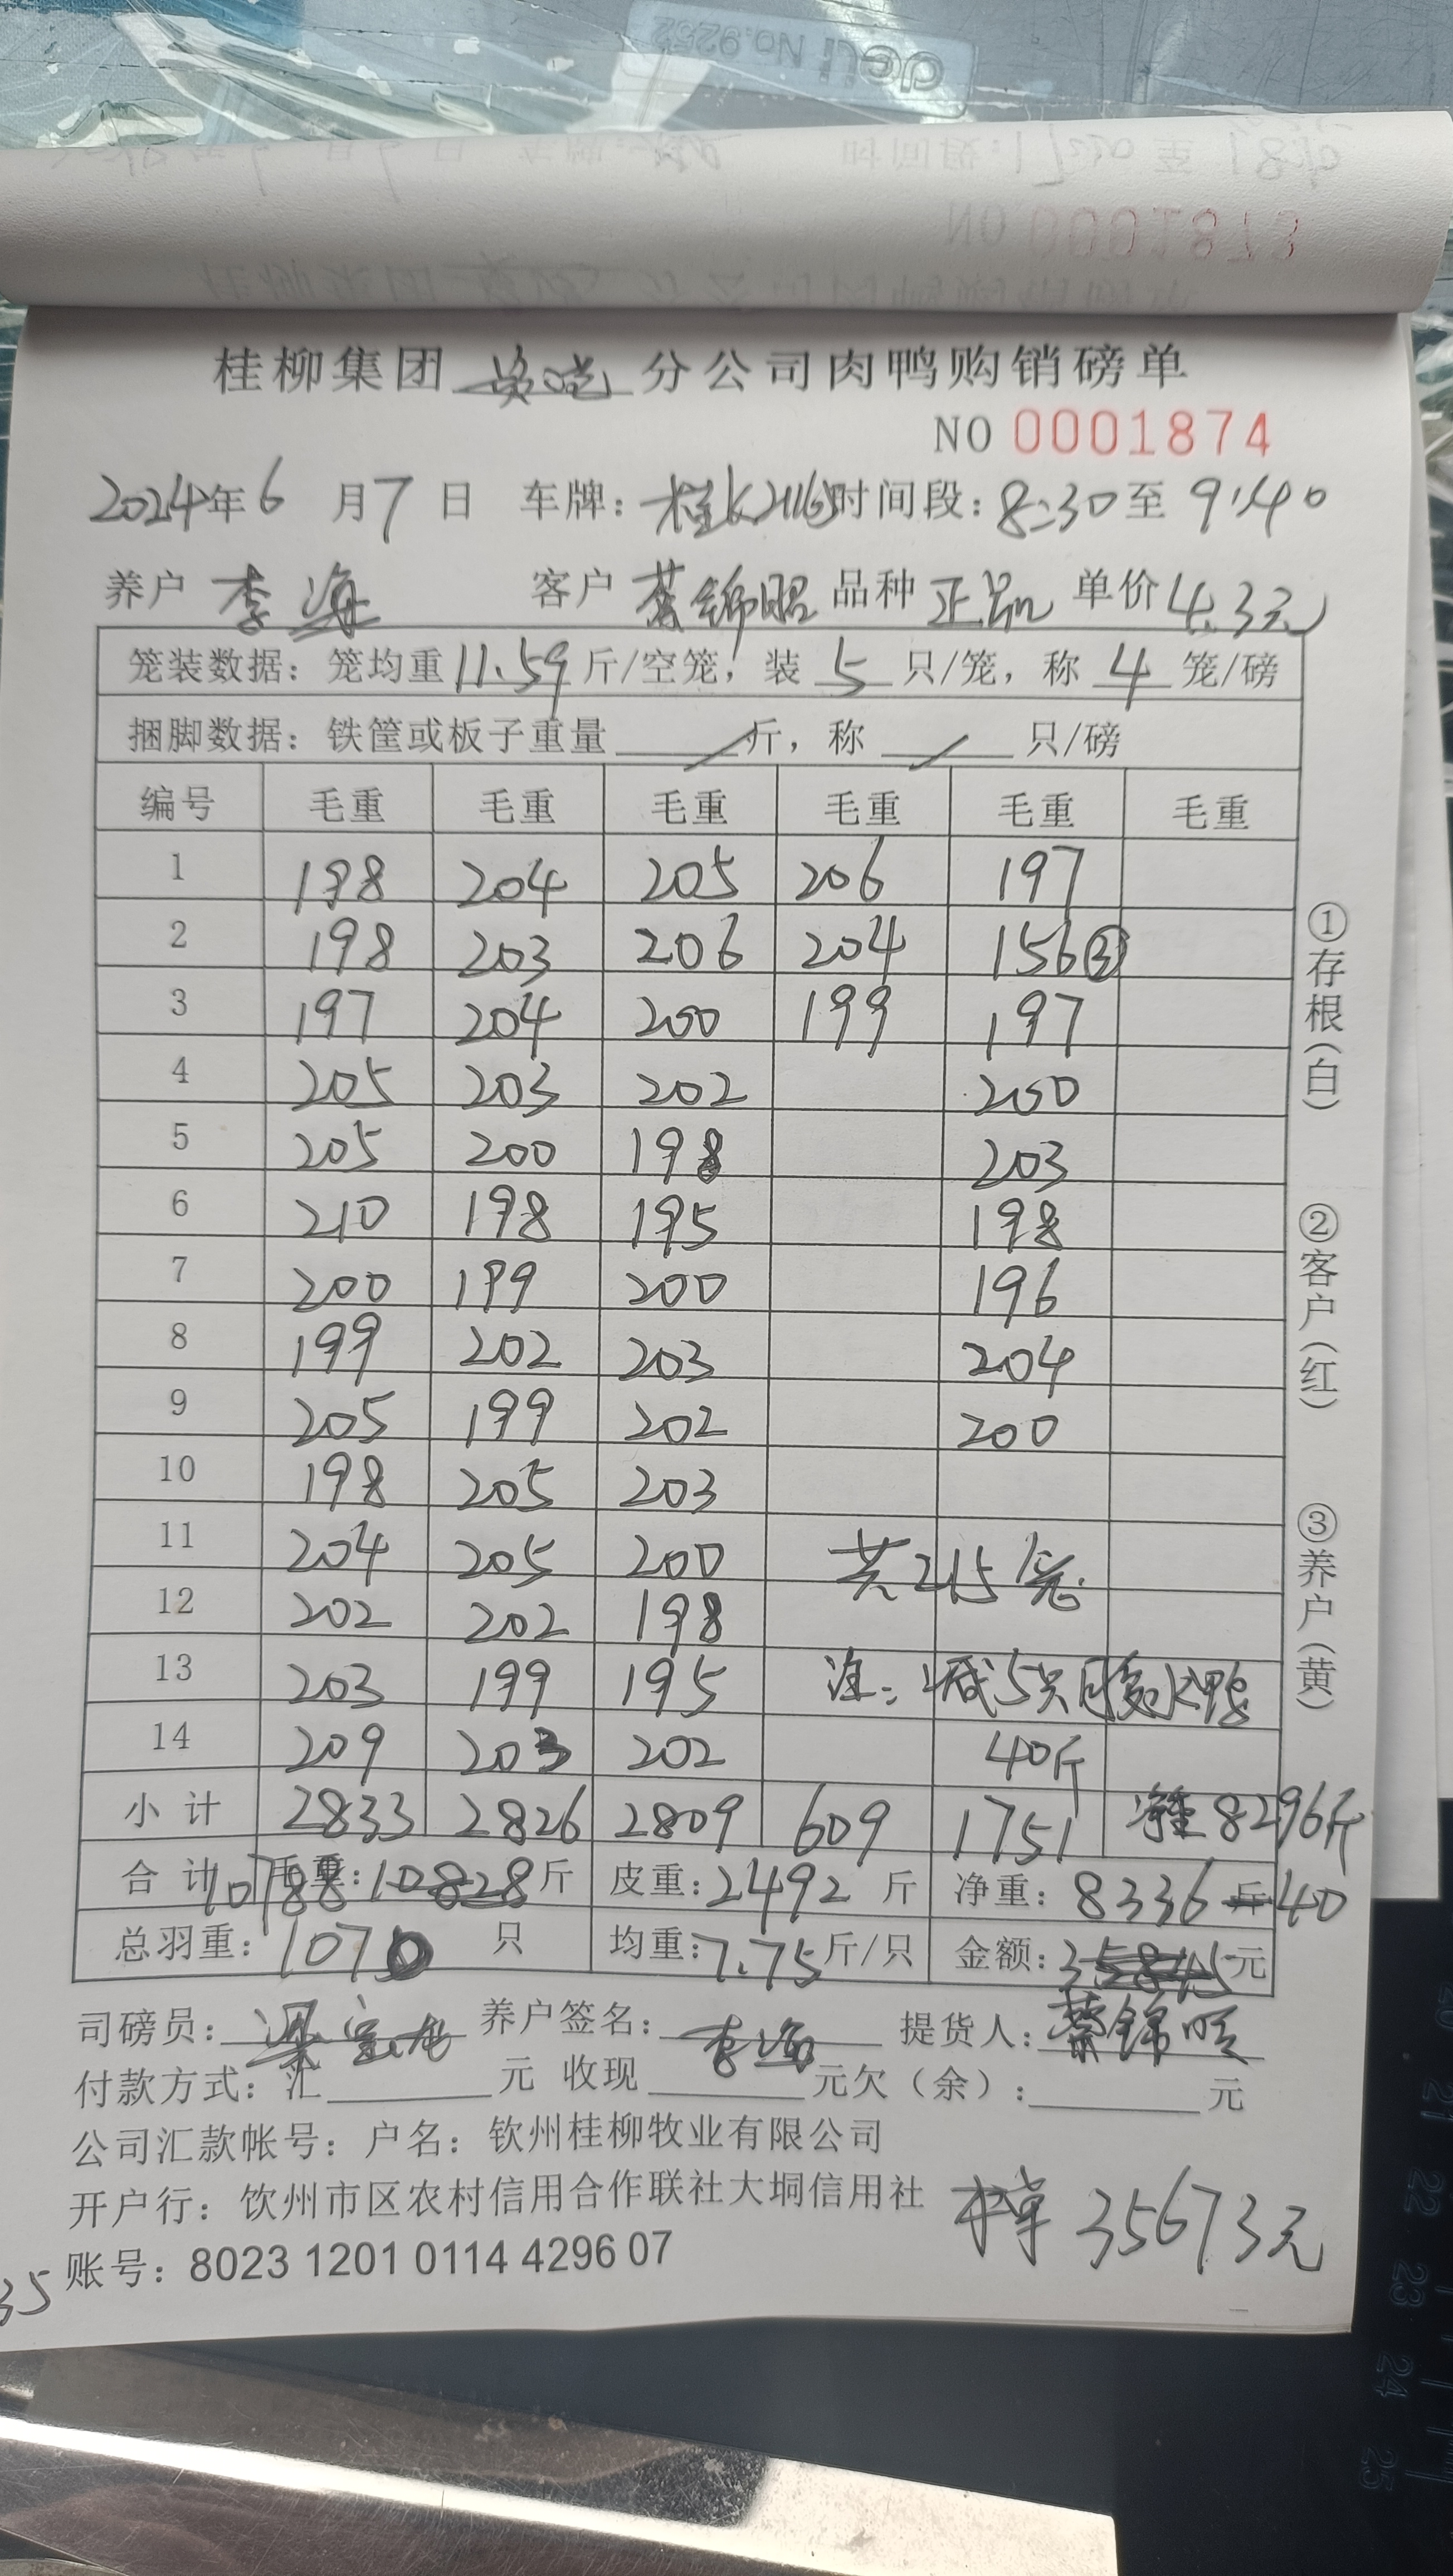 deli No.9252
NO 0001873
桂柳集团 分公司肉鸭购销磅单
NO 0001874
2024年6月7日 车牌: 时间段:8:30至9:40
养户 李海 客户 蔡锦昭 品种 正品 单价4.3元
笼装数据: 笼均重11.59斤/空笼, 装5只/笼, 称4笼/磅
捆脚数据: 铁筐或板子重量 / 斤, 称 / 只/磅
编号 毛重 毛重 毛重 毛重 毛重 毛重
1 198 204 205 206 197
2 198 203 206 204 156③
3 197 204 200 199 197
4 205 203 202 200
5 205 200 198 203
6 210 198 195 198
7 200 199 200 196
8 199 202 203 204
9 205 199 202 200
10 198 205 203
11 204 205 200 共215笼
12 202 202 198
13 203 199 195 注:减5只 水鸭
14 209 203 202 40斤
小计 2833 2826 2809 609 1751 净重8296斤
合计 10788 毛重:10828斤 皮重:2492斤 净重:8336斤 40
总羽重:1070只 均重:7.75斤/只 金额:35845元
司磅员: 养户签名:李海 提货人:蔡锦昭
付款方式: 汇 元 收现 元欠(余): 元
公司汇款帐号: 户名: 钦州桂柳牧业有限公司
开户行: 钦州市区农村信用合作联社大垌信用社
35673元
账号: 8023 1201 0114 4296 07
35
①存根(白)
②客户(红)
③养户(黄)
22
23
24
25